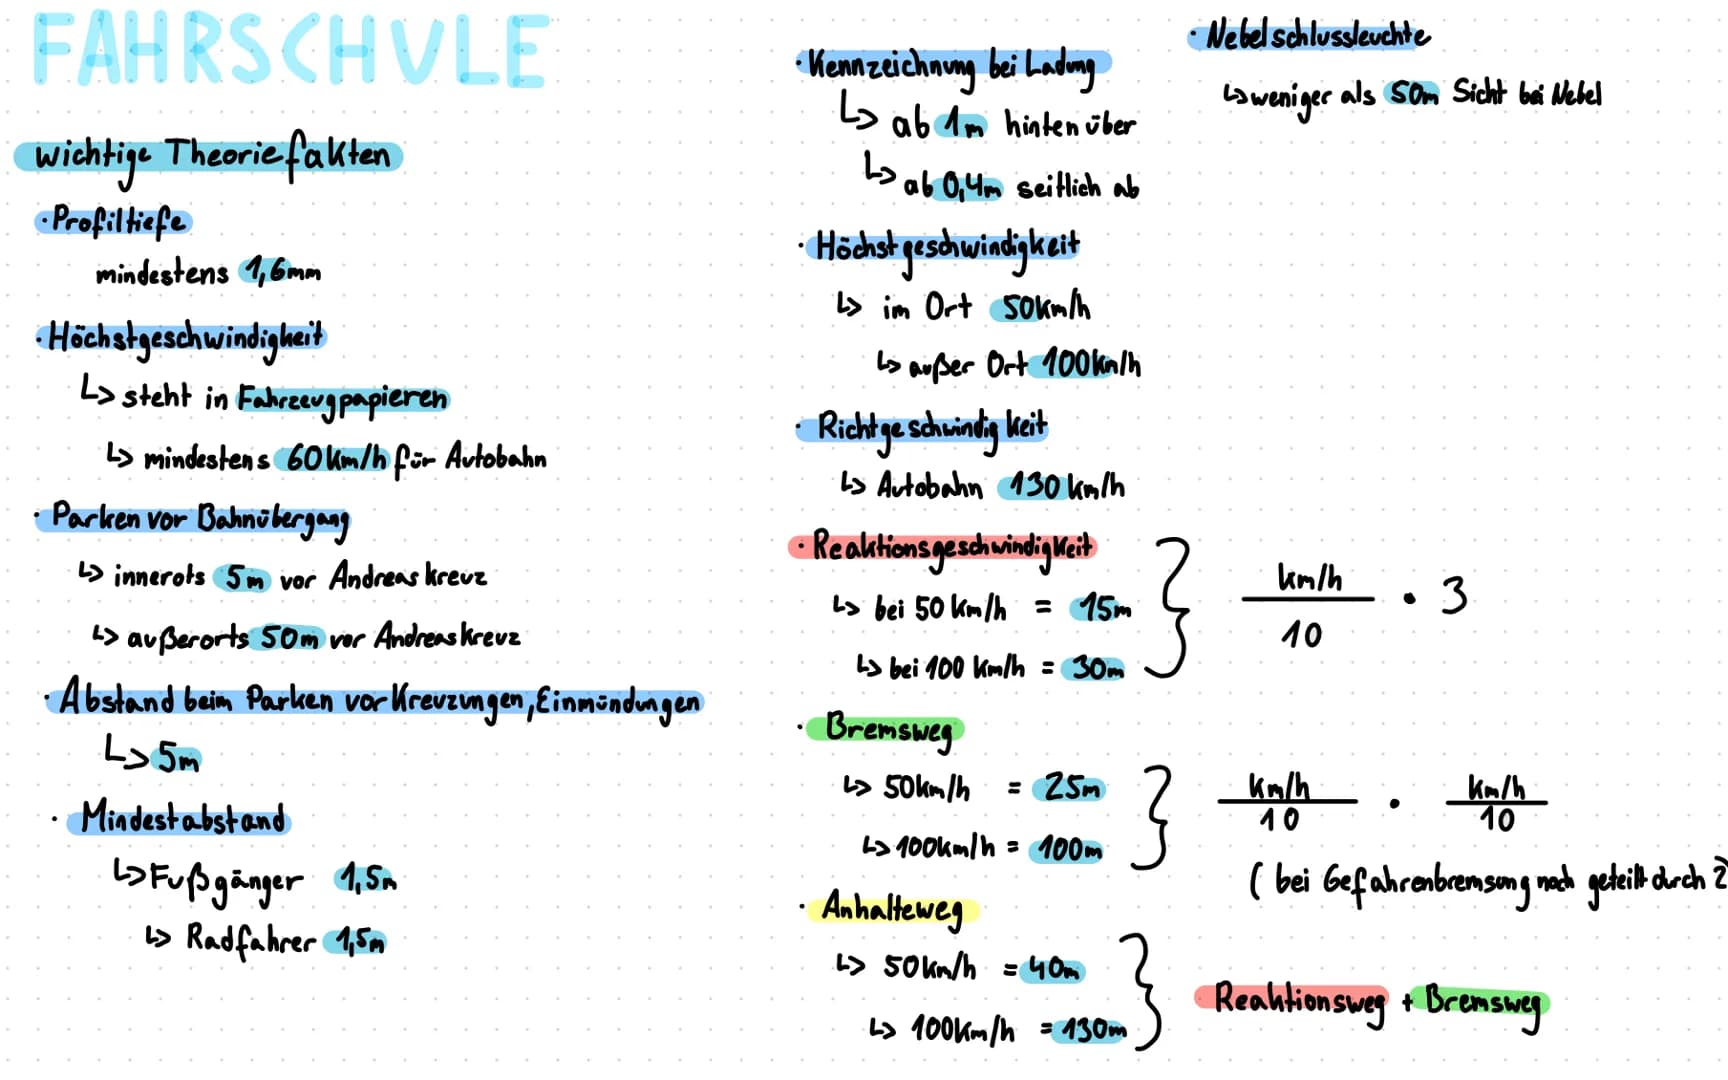 FAHRSCHULE
wichtige Theoriefakten
· Profiltiefe
mindestens 1,6mm
· Höchstgeschwindigkeit
↳ steht in Fahrzeugpapieren
↳ mindestens 60km/h für Autobahn
· Parken vor Bahnübergang
↳ innerots 5m vor Andreaskreuz
↳ außerorts 50m vor Andreaskreuz
· Abstand beim Parken vor Kreuzungen, Einmündungen
↳ 5m
· Mindestabstand
↳ Fußgänger 1,5m
↳ Radfahrer 1,5m
· Kennzeichnung bei Ladung
↳ ab 1m hinten über
↳ ab 0,4m seitlich ab
· Höchstgeschwindigkeit
↳ im Ort 50km/h
↳ außer Ort 100km/h
· Richtgeschwindigkeit
↳ Autobahn 130 km/h
· Reaktionsgeschwindigkeit
↳ bei 50 km/h = 15m
↳ bei 100 km/h = 30m
km/h
10
· 3
· Bremsweg
↳ 50km/h = 25m
↳ 100km/h = 100m
km/h · km/h
10 10
( bei Gefahrenbremsung noch geteilt durch 2
· Anhalteweg
↳ 50km/h = 40m
↳ 100km/h = 130m
Reaktionsweg + Bremsweg
· Nebelschlussleuchte
↳ weniger als 50m Sicht bei Nebel